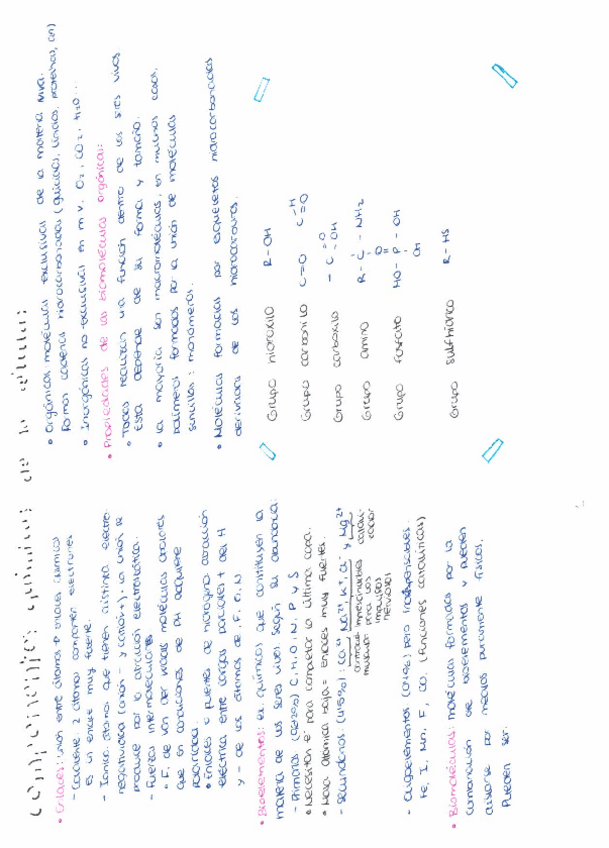 componentes químicos de la célula:
• Enlaces: unión entre átomos → enlace químico
- Covalente: 2 átomos comparten electrones
es un enlace muy fuerte.
- Iónico: átomos que tienen distinta electro-
negatividad (anión - y catión +). La unión se
produce por la atracción electrostática.
- Fuerzas intermoleculares
• F. de Van der Waals: moléculas apolares
que en condiciones de PH adquiere
polaridad.
• Enlaces o puentes de hidrógeno: atracción
eléctrica entre cargas parciales + del H
y - de los átomos de, F, O, N
• Bioelementos: el. químicos que constituyen la
materia de los seres vivos según su abundancia:
- Primarios C, H, O, N, P y S
• Necesitan e- para completar la última capa.
• Masa atómica baja = enlaces muy fuertes.
- Secundarios: Ca²⁺ Na⁺, K⁺, Cl⁻ y Mg²⁺
imprescindibles
para los
impulsos
nerviosos
- Oligoelementos pero indispensables.
Fe, I, Mn, F, Co, (funciones catalíticas)
• Biomoléculas: moléculas formadas por la
combinación de bioelementos y pueden
aislarse por medios puramente físicos.
Pueden ser:
• Orgánicas: moléculas exclusivas de la materia viva.
forman cadenas hidrocarbonadas (glúcidos, lípidos, proteínas, an)
• Inorgánicas: no exclusivas m m v. O₂, CO₂, H₂O...
• Propiedades de las biomoléculas orgánicas:
• Todas realizan una función dentro de los seres vivos
Esta depende de su forma y tamaño.
• La mayoría son macromoléculas, en muchos casos,
polímeros formados por la unión de moléculas
sencillas: monómeros.
• Moléculas formadas por esqueletos hidrocarbonados
derivados de los hidrocarburos.
Grupo hidroxilo R - OH
Grupo carbonilo C=O C=O - H
Grupo carboxilo - C = O - OH
Grupo amino R - C - NH₂
Grupo fosfato HO - P - OH O OH
Grupo sulfhídrico R - HS